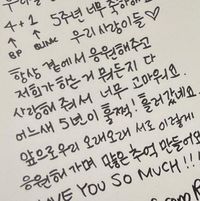 4+1 5주년 너무 축하해
↑ ↑ 우리 사랑이들♡
BP BLINK
항상 곁에서 응원해주고
저희가 하는거 뭐든지 다
사랑해줘서 너무 고마워요.
어느새 5년이 훌쩍! 흘러갔네요.
앞으로 우리 오래오래 서로 이렇게
응원해가며 많은 추억 만들어요
LOVE YOU SO MUCH!!!